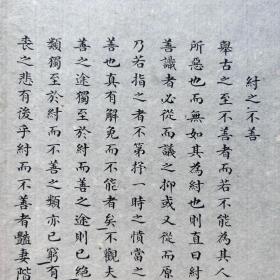 紂之不善
舉古之至不善者而若不能為其人
所惡也而無如其為紂也則直曰紂
善識者必從而議之抑或又從而原
乃若指之者不第拌一時之憤當之
善也真有解免而不能者矣不觀夫
善之途獨至於紂而善之途則已絕
類獨至於紂而不善之類亦已窮有
喪之悲有後乎紂而不善者豔妻階